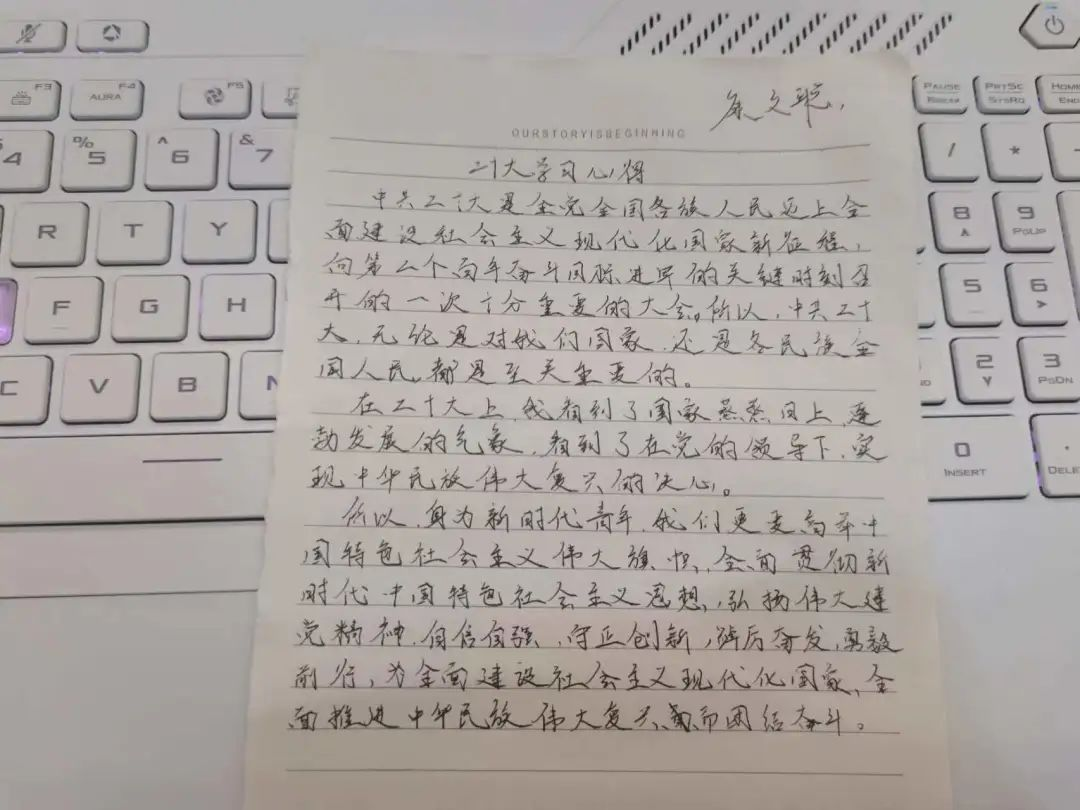 F3
F4
AURA
F5
PAUSE
BREAK
PRTSC
SYSRQ
HOME
END
4
%
5
^
6
&
7
/
*
-
R
T
Y
8
9
PGUP
F
G
H
5
6
C
V
B
N
2
3
PGDN
0
INSERT
DELE
文聪
OURSTORYISBEGINNING
二十大学习心得
中共二十大是全党全国各族人民迈上全
面建设社会主义现代化国家新征程,
向第二个百年奋斗目标进军的关键时刻召
开的一次十分重要的大会。所以,中共二十
大,无论是对我们国家,还是各民族全
国人民,都是至关重要的。
在二十大上,我看到了国家蒸蒸日上,蓬
勃发展的气象,看到了在党的领导下,实
现中华民族伟大复兴的决心。
所以,身为新时代青年,我们更要高举中
国特色社会主义伟大旗帜,全面贯彻新
时代中国特色社会主义思想,弘扬伟大建
党精神,自信自强、守正创新,踔厉奋发,勇毅
前行,为全面建设社会主义现代化国家、全
面推进中华民族伟大复兴而团结奋斗。